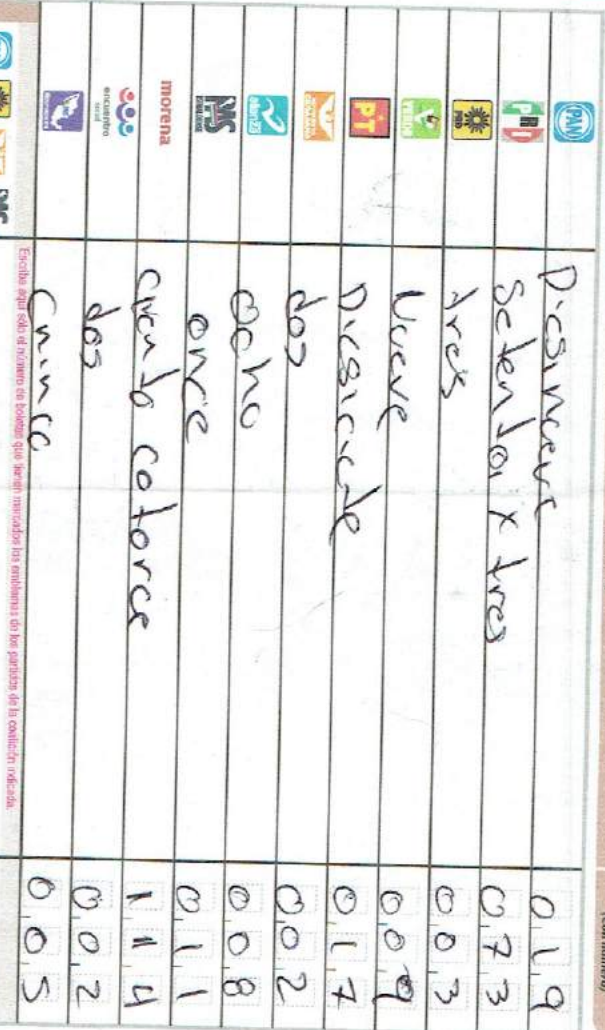 PAN Diesinueve 019
PRI Setenta y tres 073
PRD tres 003
VERDE Nueve 009
PT Diesiciete 017
dos 002
alianza ocho 008
PMS once 011
morena ciento catorce 114
encuentro social dos 002
Cinco 005
Escriba aquí sólo el número de boletas que tienen marcados los emblemas de los partidos de la coalición indicada.